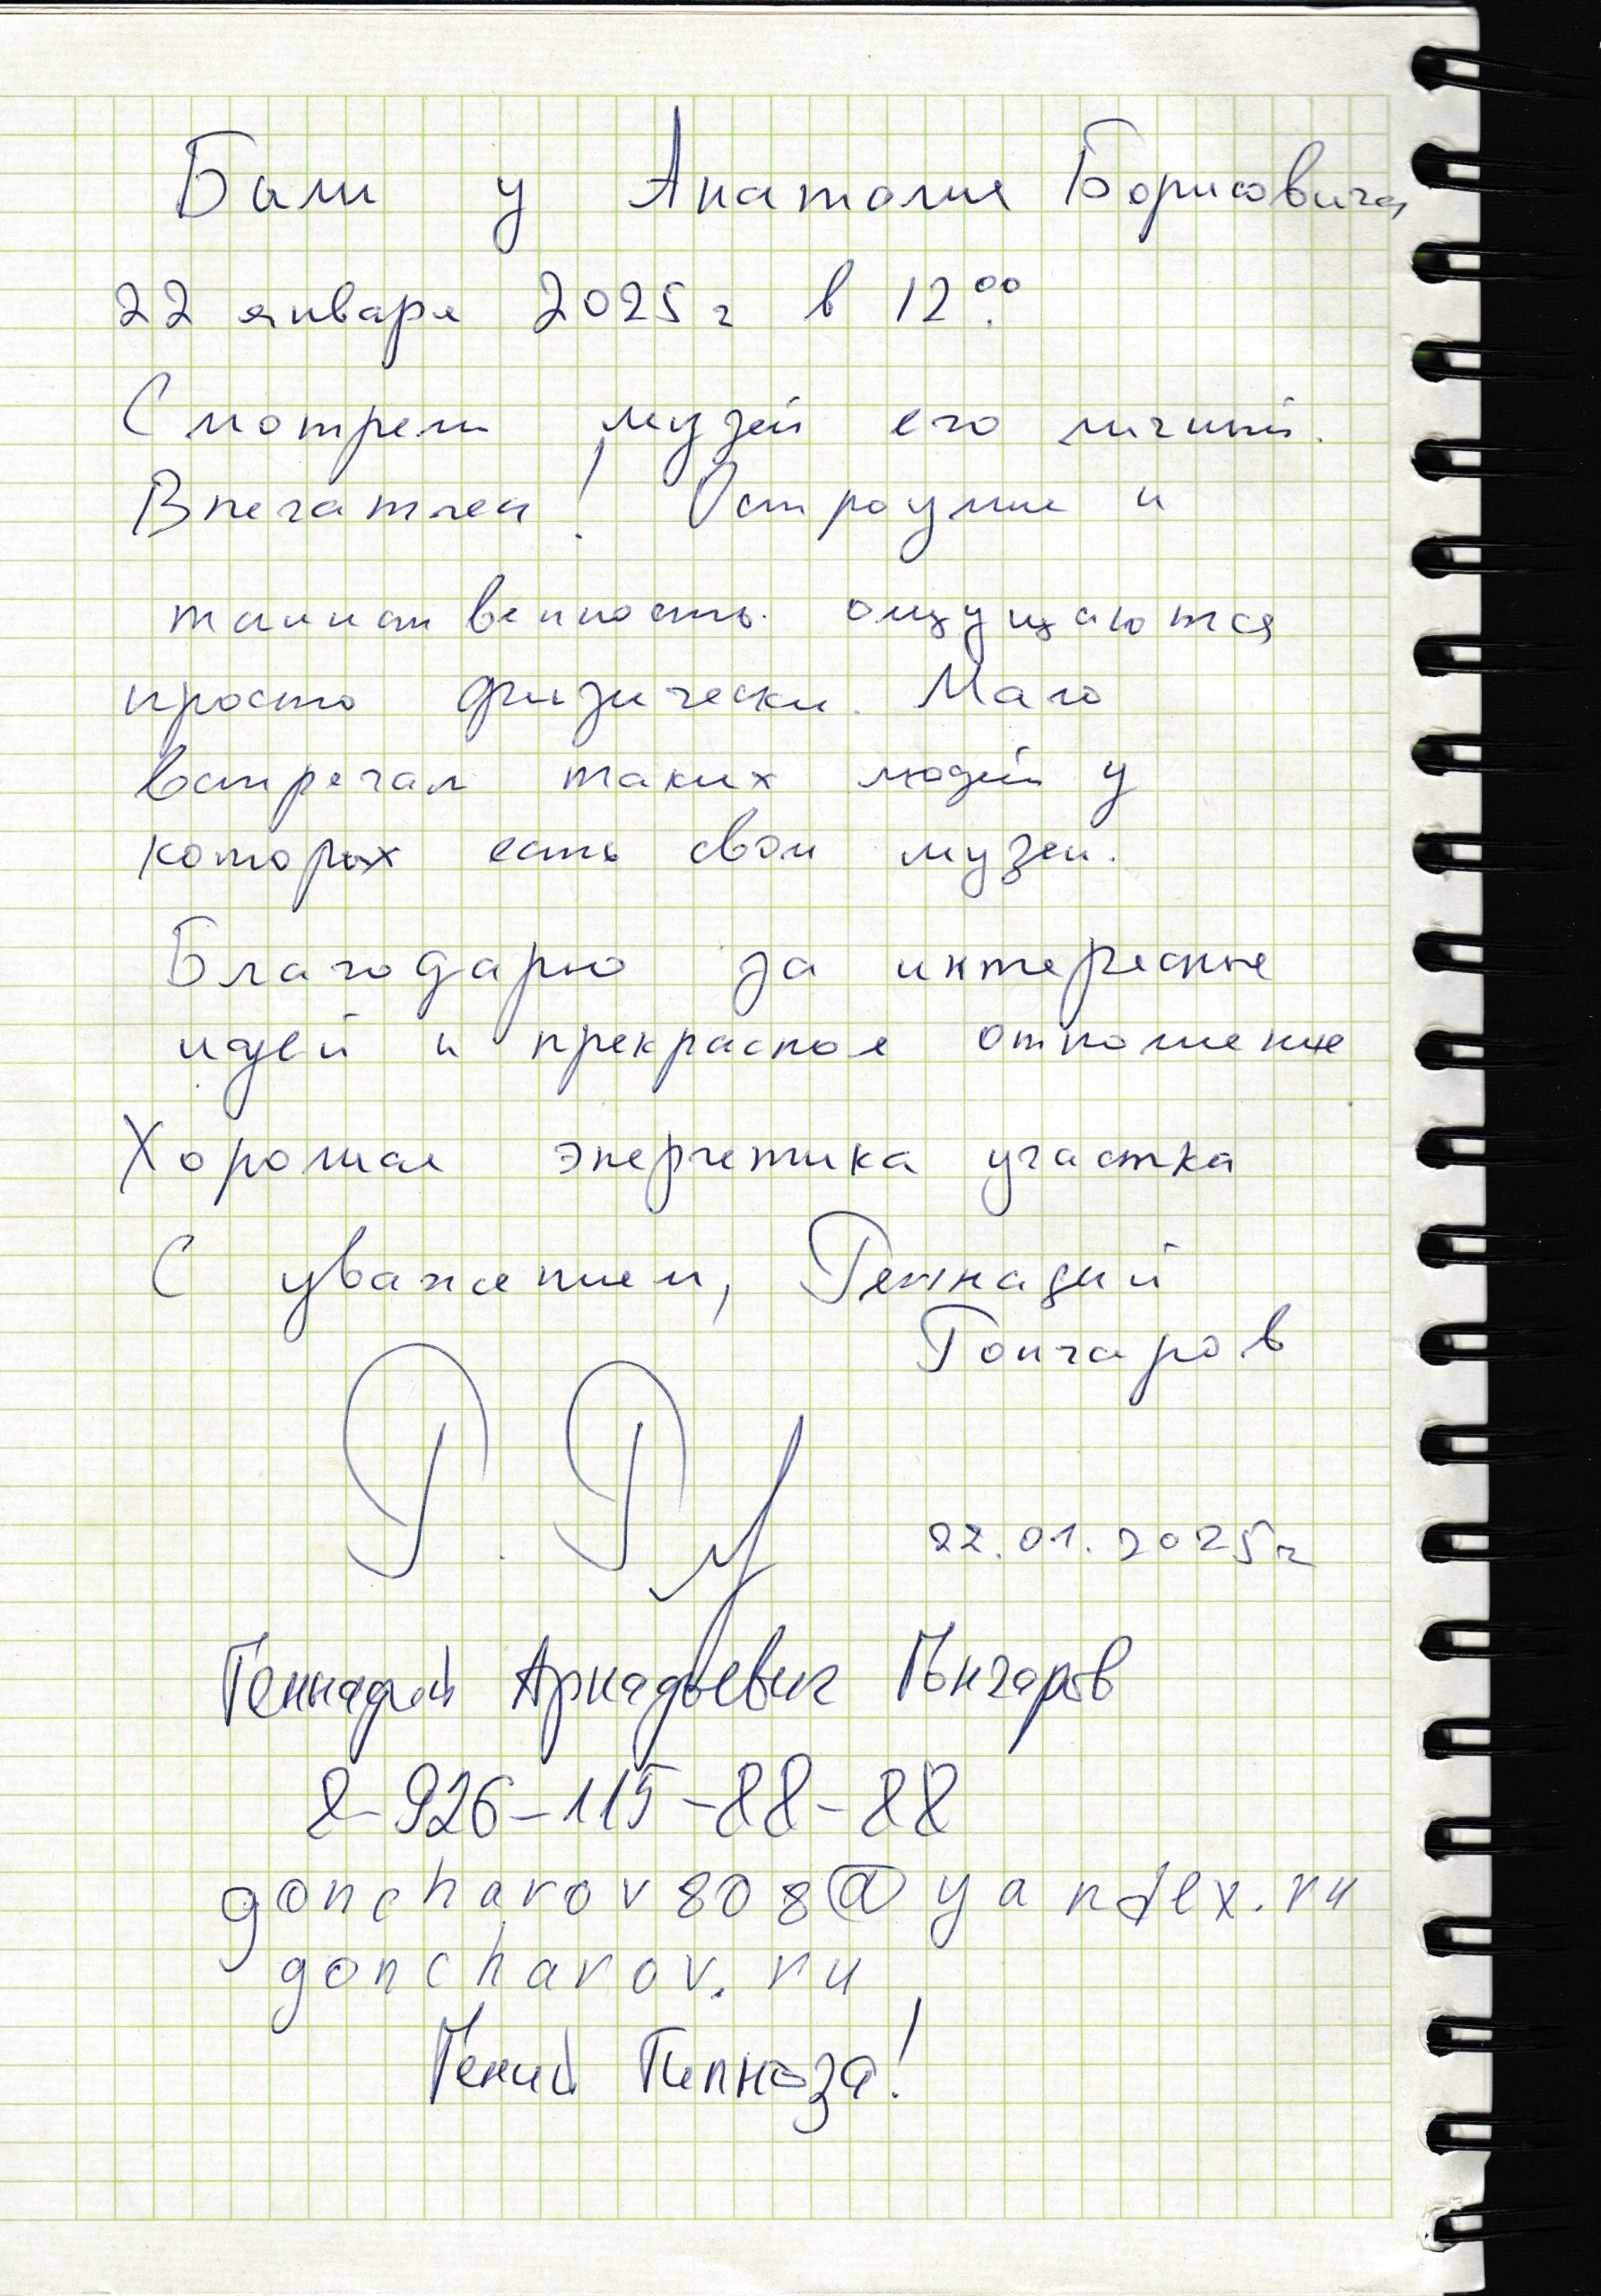 Были у Анатолия Борисовича
22 января 2025г в 12⁰⁰.
Смотрели музей его личный.
Впечатлен! Остроумие и
таинственность ощущаются
просто физически. Мало
встречал таких людей у
которых есть свои музеи.
Благодарю за интересные
идей и прекрасное отношение
Хорошая энергетика участка
С уважением, Геннадий
Гончаров
22.01.2025г
Геннадий Аркадьевич Гончаров
8-926-115-88-88
goncharov808@yandex.ru
goncharov.ru
Гений Гипноза!